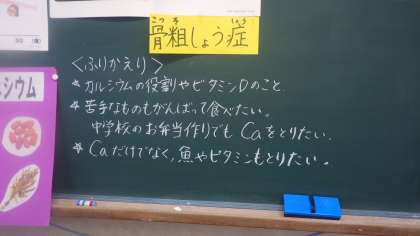 こつそ しょう
骨粗しょう症
<ふりかえり>
★カルシウムの役割やビタミンDのこと.
★苦手なものもがんばって食べたい。
中学校のお弁当作りでも Caをとりたい.
★Caだけでなく、魚やビタミンもとりたい。
シウム